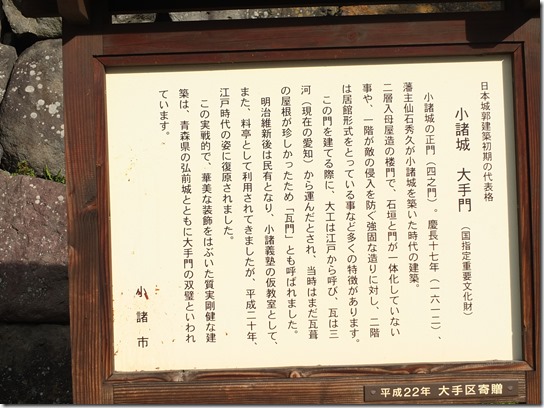 日本城郭建築初期の代表格
小諸城　大手門　（国指定重要文化財）
小諸城の正門（四之門）。慶長十七年（一六一二）、
藩主仙石秀久が小諸城を築いた時代の建築。
二層入母屋造の楼門で、石垣と門が一体化していない
事や、一階が敵の侵入を防ぐ強固な造りに対し、二階
は居館形式をとっている事など多くの特徴があります。
この門を建てる際に、大工は江戸から呼び、瓦は三
河（現在の愛知）から運んだとされ、当時はまだ瓦葺
の屋根が珍しかったため「瓦門」とも呼ばれました。
明治維新後は民有となり、小諸義塾の仮教室として、
また、料亭として利用されてきましたが、平成二十年、
江戸時代の姿に復原されました。
この実戦的で、華美な装飾をはぶいた質実剛健な建
築は、青森県の弘前城とともに大手門の双璧といわれ
ています。
小諸市
平成22年 大手区寄贈